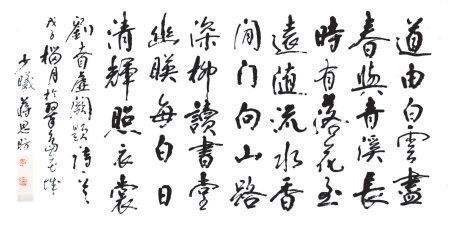 道由白雲盡
春與青溪長
時有落花至
遠隨流水香
閒门向山路
深柳讀書堂
幽暎每白日
清輝照衣裳
劉眘虛闕題詩
戊子月於
少曦蔣思